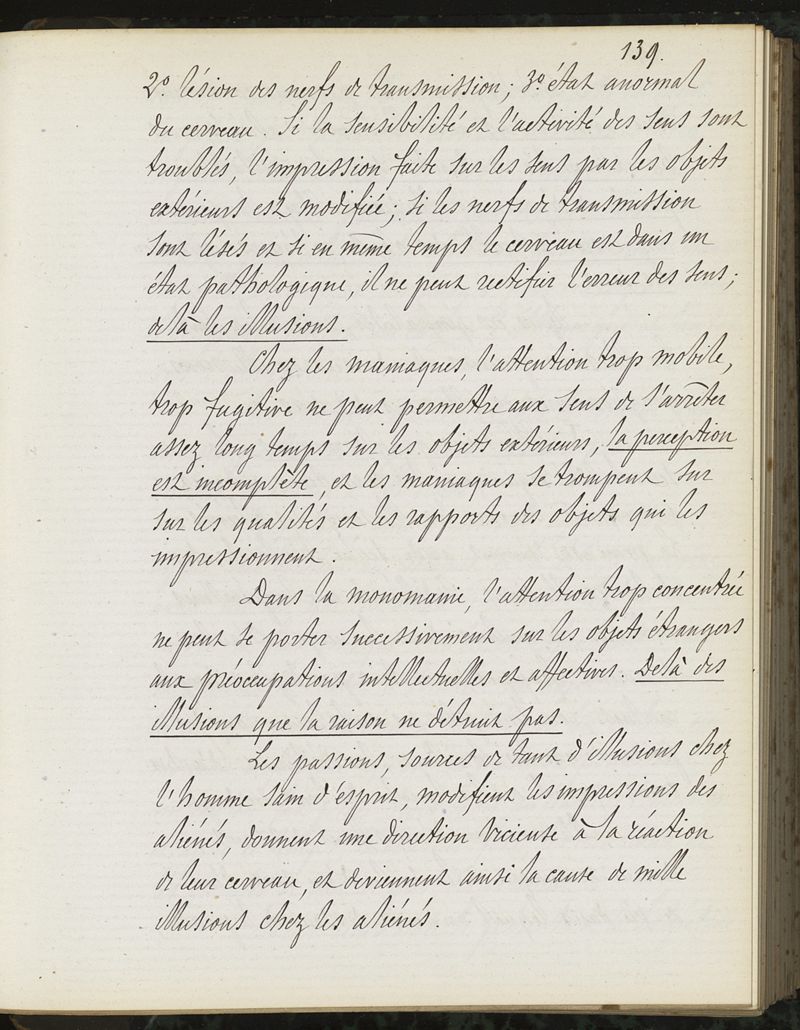 139.
2º. lésion des nerfs de transmission; 3º. état anormal
du cerveau. Si la sensibilité et l'activité des sens sont
troublés, l'impression faite sur les sens par les objets
extérieurs est modifiée; si les nerfs de transmission
sont lésés et si en même temps le cerveau est dans un
état pathologique, il ne peut rectifier l'erreur des sens;
delà les illusions.
Chez les maniaques, l'attention trop mobile,
trop fugitive ne peut permettre aux sens de s'arrêter
assez long temps sur les objets extérieurs, la perception
est incomplète, et les maniaques se trompent sur
sur les qualités et les rapports des objets qui les
impressionnent.
Dans la monomanie, l'attention trop concentrée
ne peut se porter successivement sur les objets étrangers
aux préoccupations intellectuelles et affectives. Delà des
illusions que la raison ne détruit pas.
Les passions, sources de tant d'illusions chez
l'homme sain d'esprit, modifient les impressions des
aliénés, donnent une direction vicieuse à la réaction
de leur cerveau, et deviennent ainsi la cause de mille
illusions chez les aliénés.